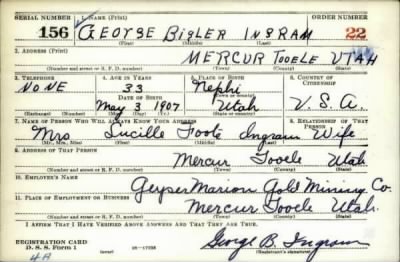 SERIAL NUMBER 1. NAME (Print) ORDER NUMBER
156 GEORGE BIGLER INGRAM 22
(First) (Middle) (Last)
2. ADDRESS (Print)
MERCUR TOOELE UTAH
(Number and street or R. F. D. number) (Town) (County) (State)
3. TELEPHONE 4. AGE IN YEARS 5. PLACE OF BIRTH 6. COUNTRY OF CITIZENSHIP
NONE 33 Nephi
DATE OF BIRTH
May 3 1907 Utah U.S.A.
(Mo.) (Day) (Yr.) (State or country)
7. NAME OF PERSON WHO WILL ALWAYS KNOW YOUR ADDRESS 8. RELATIONSHIP OF THAT PERSON
Mrs Lucille Foote Ingram Wife
(Mr., Mrs., Miss) (First) (Middle) (Last)
9. ADDRESS OF THAT PERSON
Mercur Tooele Utah
(Number and street or R. F. D. number) (Town) (County) (State)
10. EMPLOYER'S NAME
Geyser Marion Gold Mining Co.
11. PLACE OF EMPLOYMENT OR BUSINESS
Mercur Tooele Utah.
(Number and street or R. F. D. number) (Town) (County) (State)
I AFFIRM THAT I HAVE VERIFIED ABOVE ANSWERS AND THAT THEY ARE TRUE.
REGISTRATION CARD
D. S. S. Form 1 (over) 16-17105 George B. Ingram
(Registrant's signature)